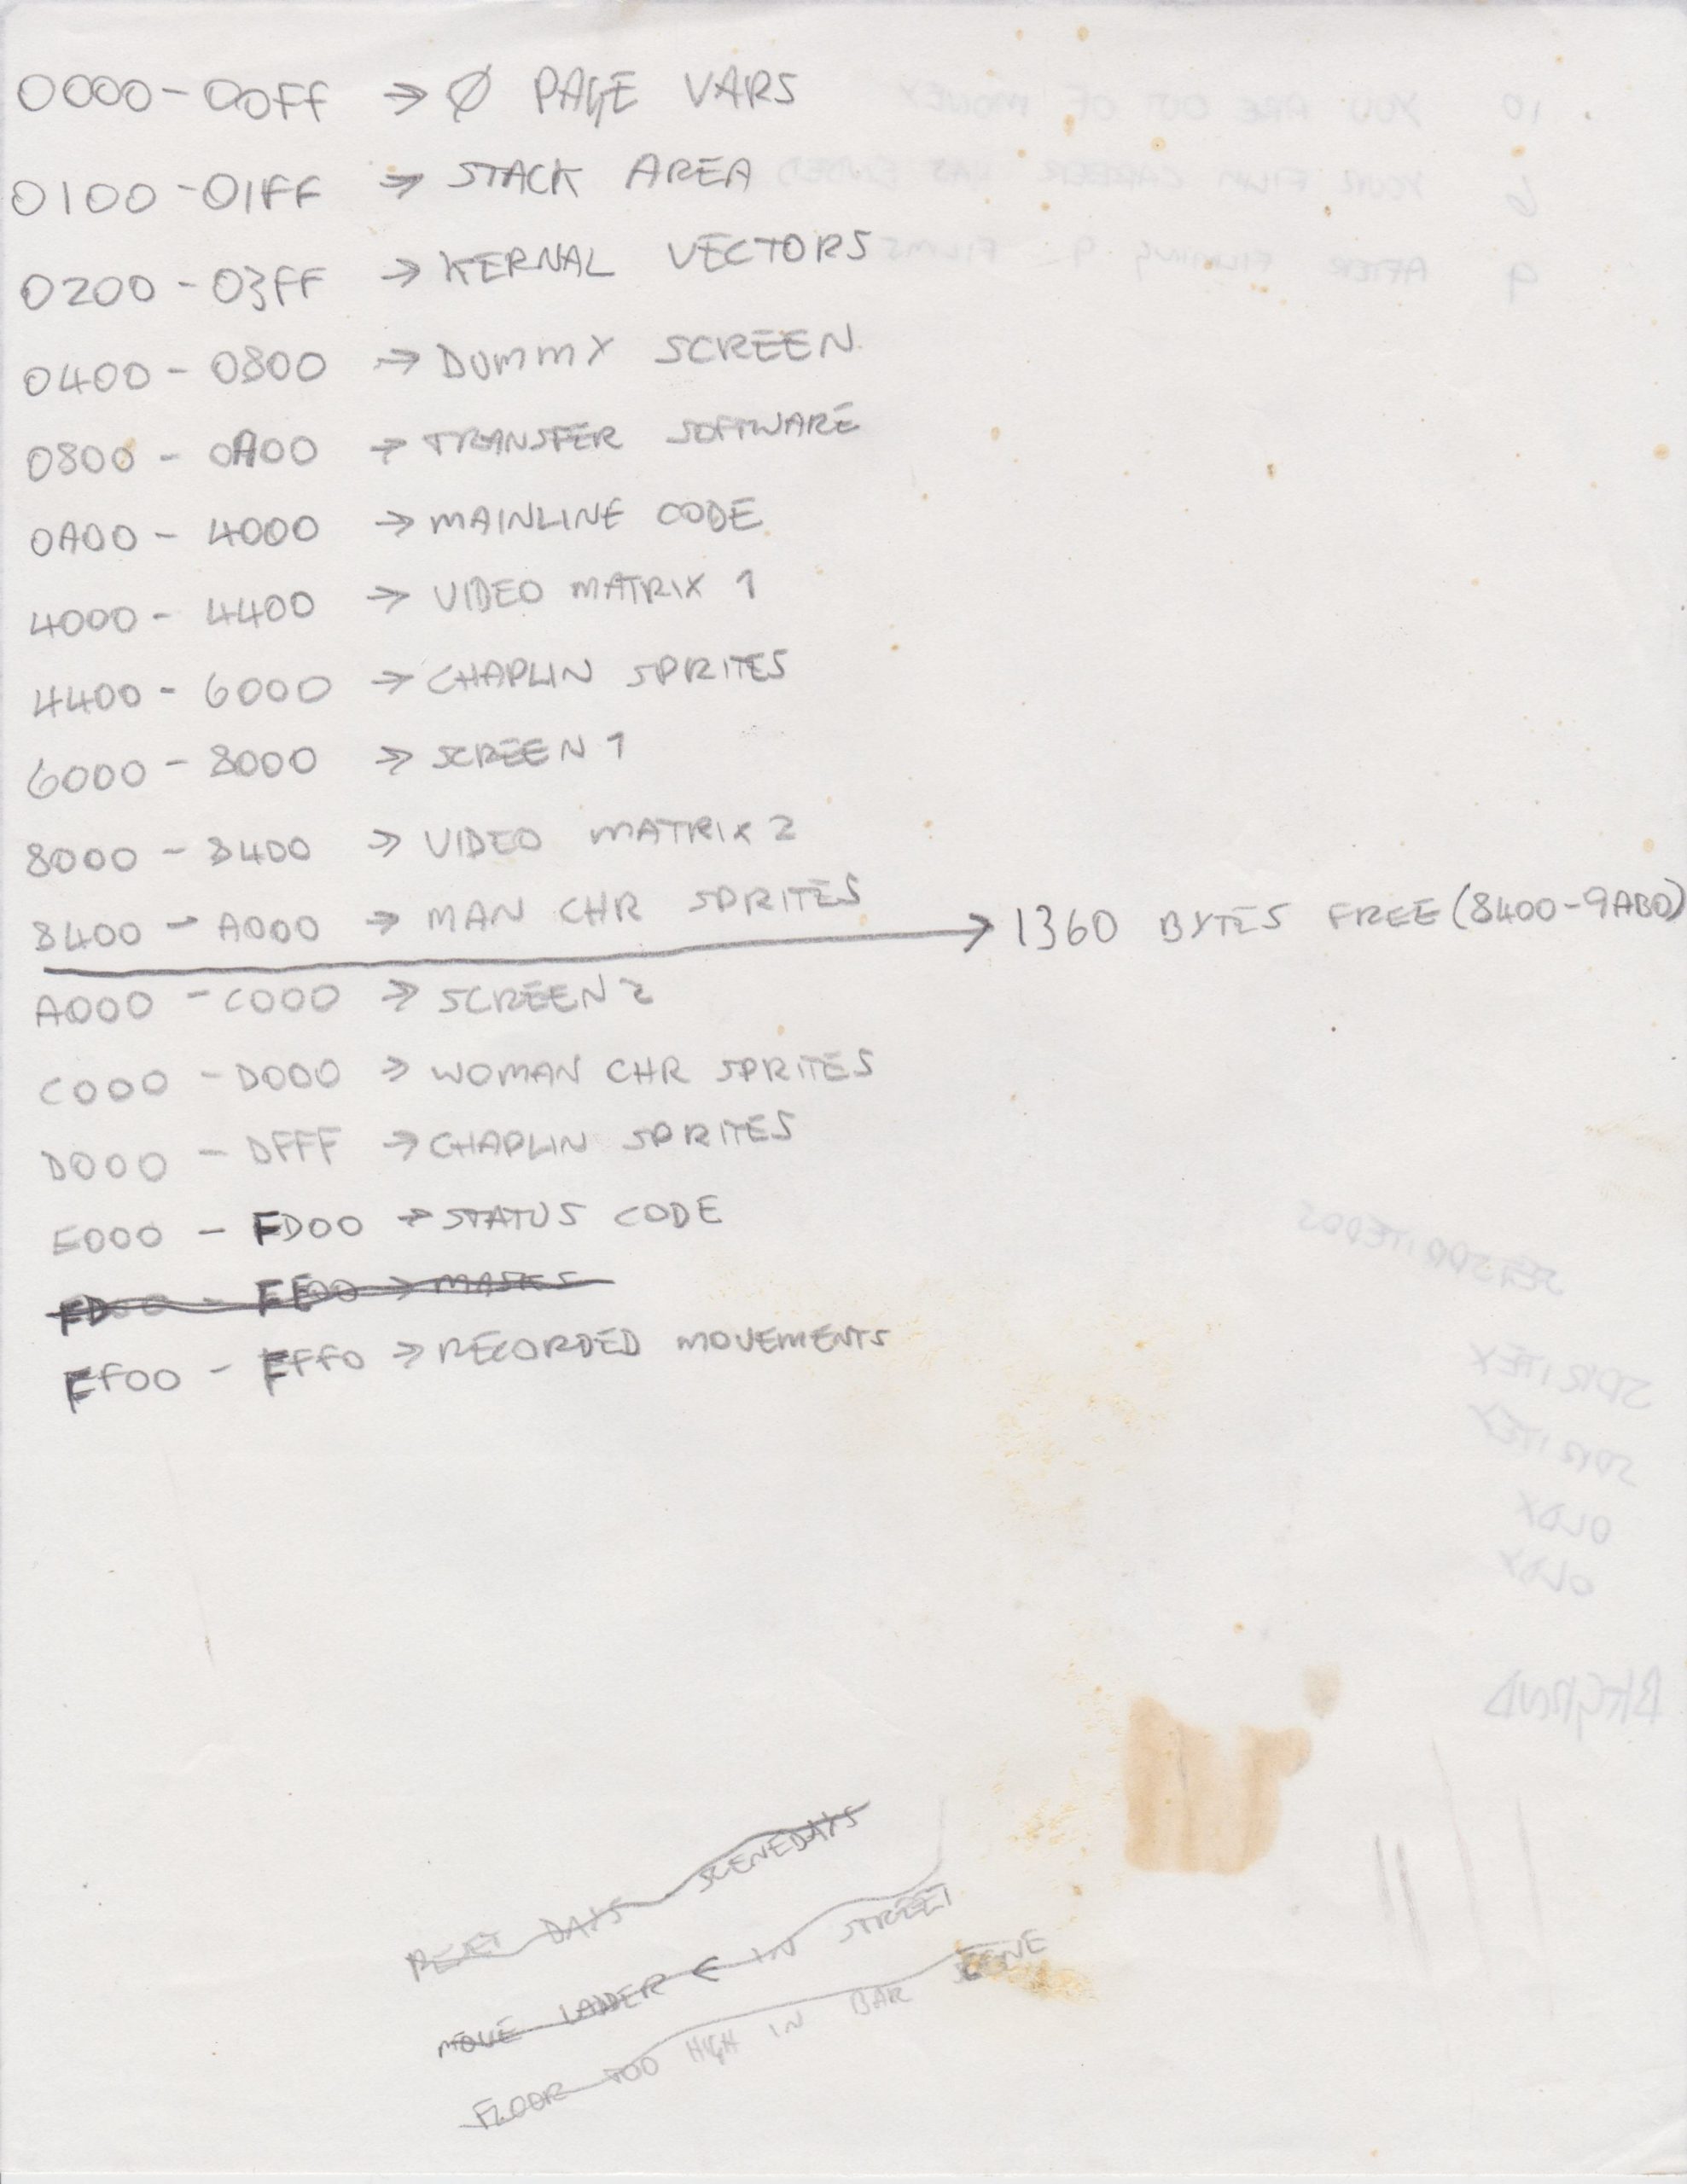 0000 - 00FF → Ø PAGE VARS
0100 - 01FF → STACK AREA
0200 - 03FF → KERNAL VECTORS
0400 - 0800 → DUMMY SCREEN
0800 - 0A00 → TRANSFER SOFTWARE
0A00 - 4000 → MAINLINE CODE
4000 - 4400 → VIDEO MATRIX 1
4400 - 6000 → CHAPLIN SPRITES
6000 - 8000 → SCREEN 1
8000 - 8400 → VIDEO MATRIX 2
8400 - A000 → MAN CHR SPRITES → 1360 BYTES FREE (8400-9AB0)
A000 - C000 → SCREEN 2
C000 - D000 → WOMAN CHR SPRITES
D000 - DFFF → CHAPLIN SPRITES
E000 - FD00 → STATUS CODE
FD00 - FE00 → MASKS
FF00 - FFF0 → RECORDED MOVEMENTS
RESET DAYS SCENEDAYS
MOVE LADDER ← IN STREET
FLOOR TOO HIGH IN BAR SCENE
10 YOU ARE OUT OF MONEY
6 YOUR FILM CAREER HAS ENDED
9 AFTER FILMING 9 FILMS
SPRITEX
SPRITEY
OLDX
OLDY
BKGRND